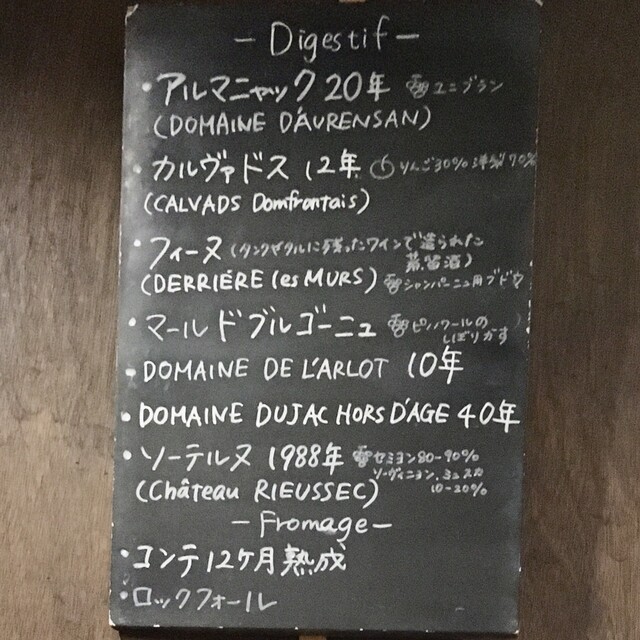 - Digestif -
・アルマニャック 20年 ユニブラン
(DOMAINE D'AURENSAN)
・カルヴァドス 12年 りんご30% 洋梨70%
(CALVADS Domfrontais)
・フィーヌ (タンクやタルに残ったワインで造られた
蒸留酒)
(DERRIÈRE les MURS) シャンパーニュ用ブドウ
・マール ド ブルゴーニュ ピノノワールの
しぼりかす
・DOMAINE DE L'ARLOT 10年
・DOMAINE DUJAC HORS D'AGE 40年
・ソーテルヌ 1988年 セミヨン80-90%
ソーヴィニヨン、ミュスカ
10-20%
(Château RIEUSSEC)
- Fromage -
・コンテ 12ケ月熟成
・ロックフォール